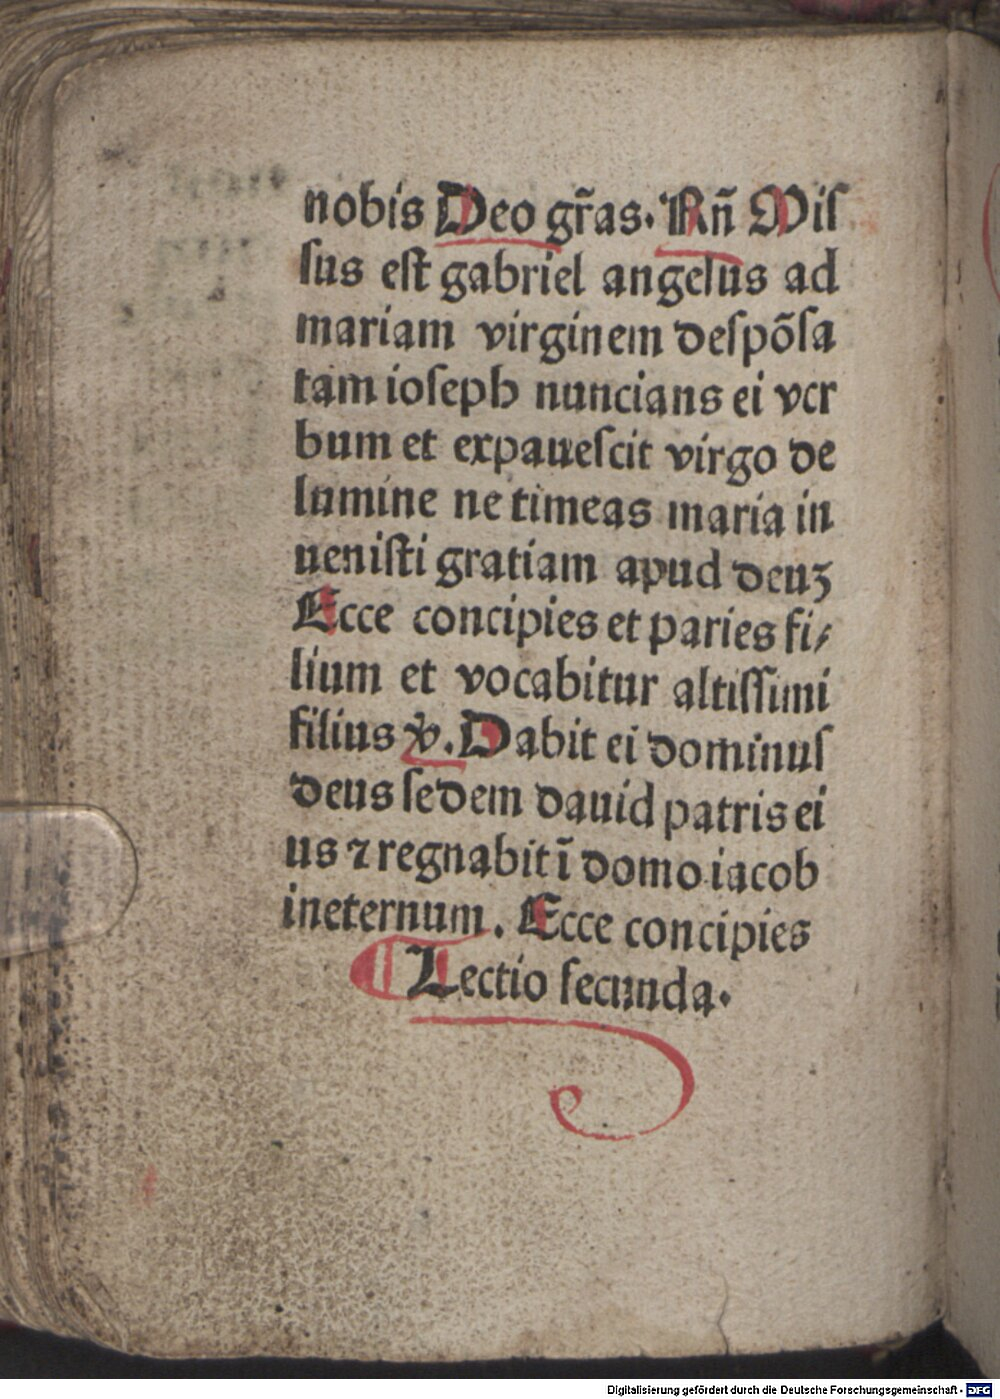 nobis Deo gr̃as. Rñ Miſ
ſus eſt gabriel angelus ad
mariam virginem deſpõſa
tam ioſeph nuncians ei ver
bum et expaueſcit virgo de
lumine ne timeas maria in
ueniſti gratiam apud deuꝫ
Ecce concipies et paries fi⸗
lium et vocabitur altiſſimi
filius ꝟ. Dabit ei dominuſ
deus ſedem dauid patris ei
us ⁊ regnabit ĩ domo iacob
ineternum. Ecce concipies
Lectio ſecunda.
Digitalisierung gefördert durch die Deutsche Forschungsgemeinschaft - DFG